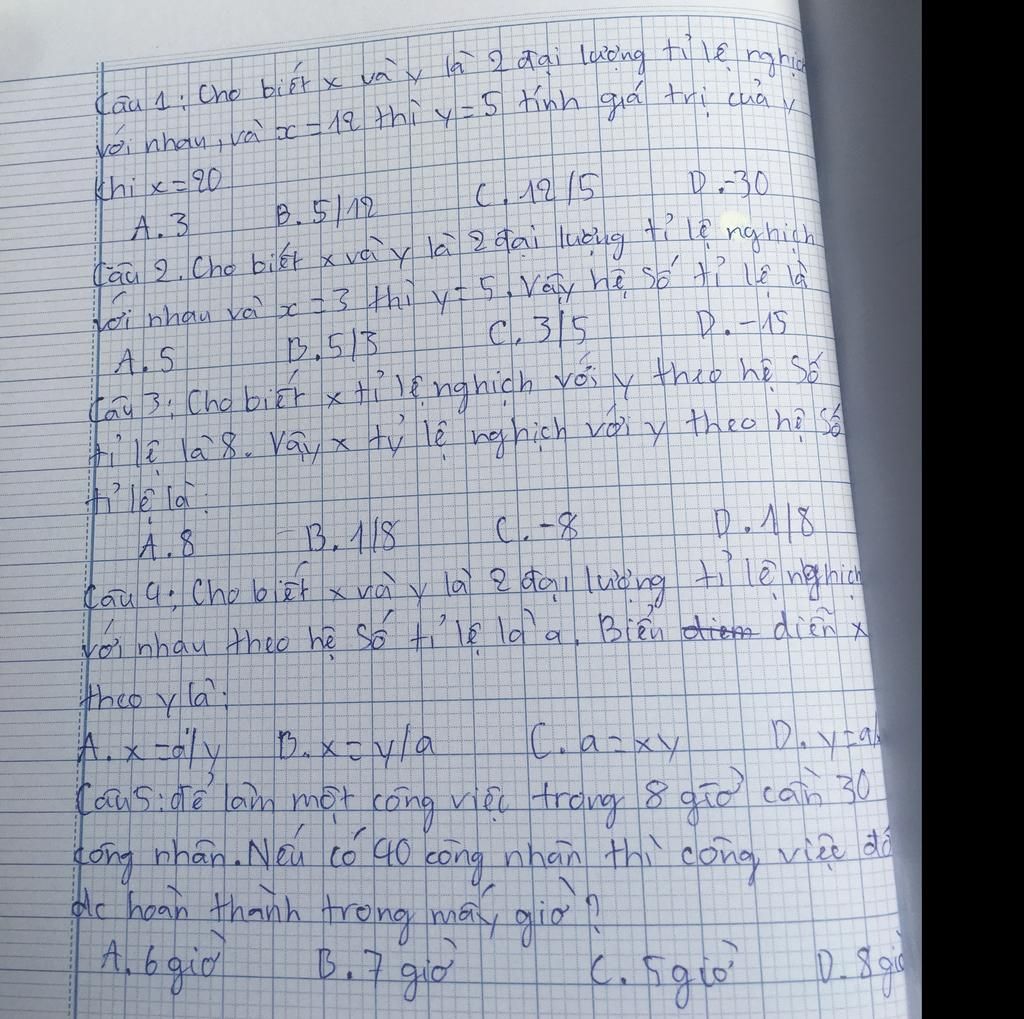 Câu 1: Cho biết x và y là 2 đại lượng tỉ lệ nghịch
với nhau, và x = 12 thì y = 5 tính giá trị của y
khi x = 20
A. 3 B. 5/12 C. 12/5 D. -30
Câu 2. Cho biết x và y là 2 đại lượng tỉ lệ nghịch
với nhau và x = 3 thì y = 5. Vậy hệ số tỉ lệ là
A. 5 B. 5/3 C. 3/5 D. -15
Câu 3: Cho biết x tỉ lệ nghịch với y theo hệ số
tỉ lệ là 8. Vậy x tỷ lệ nghịch với y theo hệ số
tỉ lệ là:
A. 8 B. 1/8 C. -8 D. 1/8
Câu 4: Cho biết x và y là 2 đại lượng tỉ lệ nghịch
với nhau theo hệ số tỉ lệ là a. Biểu diem diễn x
theo y là:
A. x = a/y B. x = y/a C. a = xy D. y = a
Câu 5: để làm một công việc trong 8 giờ cần 30
công nhân. Nếu có 40 công nhân thì công việc đó
đc hoàn thành trong mấy giờ?
A. 6 giờ B. 7 giờ C. 5 giờ D. 8 giờ